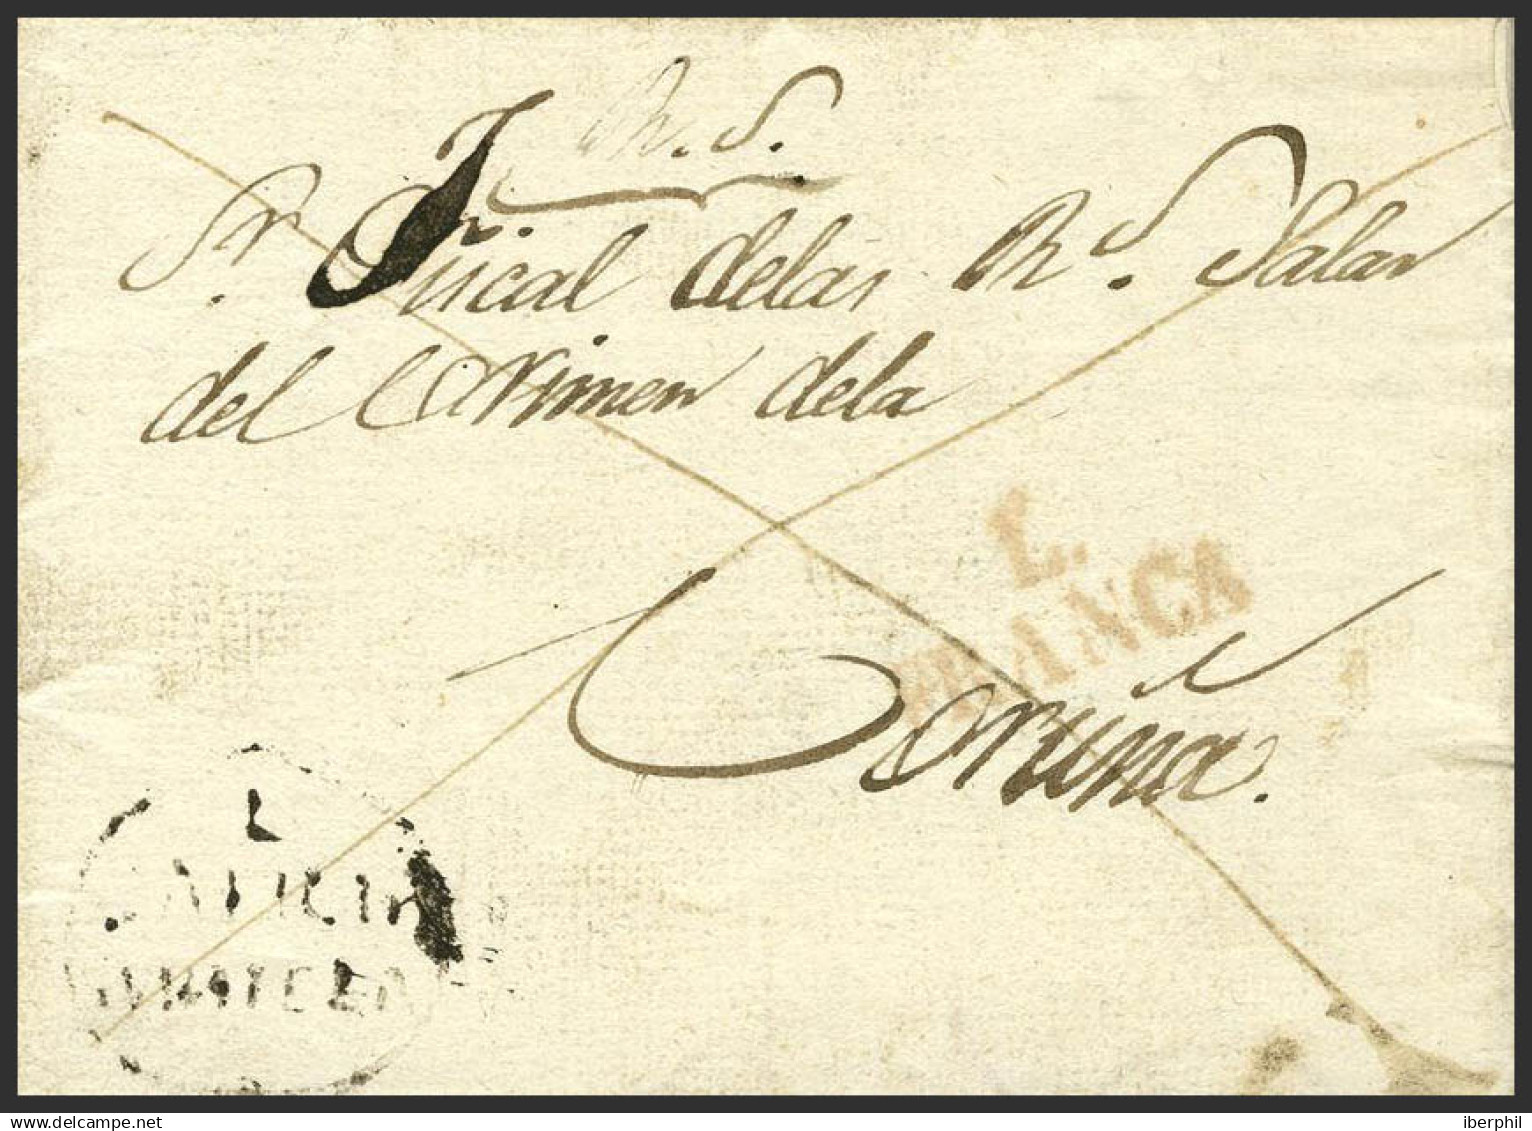 R. S.
Sr. Fiscal delas Rs. Salas
del Crimen dela
L.
FRANCA
Coruña.
L
GALICIA
delcampe.net
iberphil